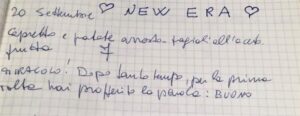 20 Settembre ♡ NEW ERA ♡
Capretto e patate arrosto fagioli all'aceto
frutta 7
MIRACOLO! Dopo tanto tempo, per la prima
volta hai profferito la parola: BUONO